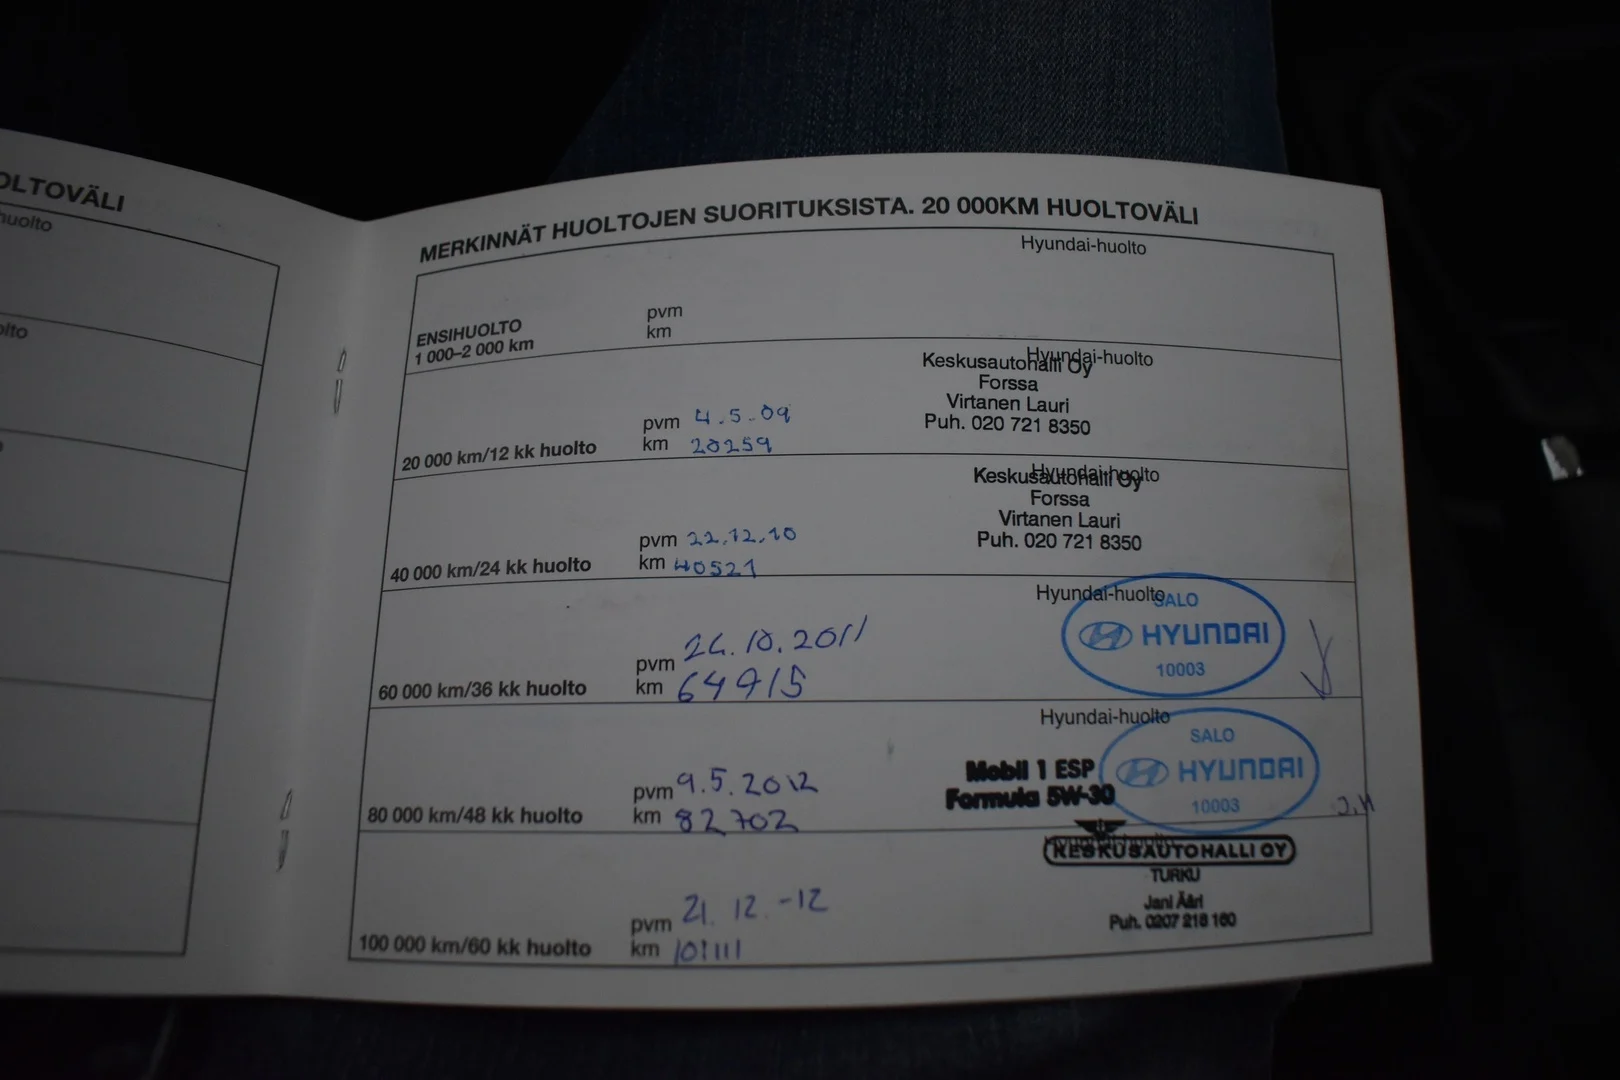 OLTOVÄLI
huolto
olto
MERKINNÄT HUOLTOJEN SUORITUKSISTA. 20 000KM HUOLTOVÄLI
Hyundai-huolto
ENSIHUOLTO
1 000–2 000 km
pvm
km
Hyundai-huolto
Keskusautohalli Oy
Forssa
Virtanen Lauri
Puh. 020 721 8350
20 000 km/12 kk huolto
pvm 4.5-09
km 20259
Hyundai-huolto
Keskusautohalli Oy
Forssa
Virtanen Lauri
Puh. 020 721 8350
40 000 km/24 kk huolto
pvm 22.12.10
km 40521
Hyundai-huolto
SALO
HYUNDAI
10003
60 000 km/36 kk huolto
pvm 24.10.2011
km 64915
Hyundai-huolto
SALO
HYUNDAI
10003
Mobil 1 ESP
Formula 5W-30
80 000 km/48 kk huolto
pvm 9.5.2012
km 82702
Hyundai-huolto
KESKUSAUTOHALLI OY
TURKU
Jani Ääri
Puh. 0207 218 160
100 000 km/60 kk huolto
pvm 21.12.-12
km 101111